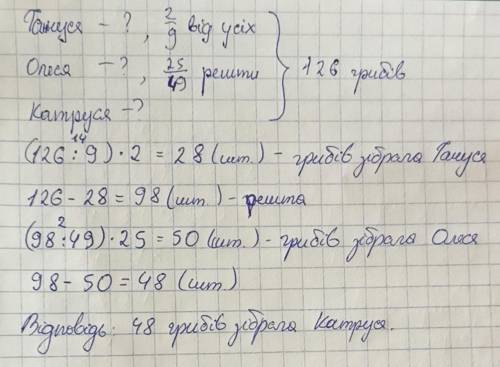 Тануся - ?, 2/9 від усіх
Олеся - ?, 25/49 решти } 126 грибів
Катруся - ?
(126 : 9) · 2 = 28 (шт.) - грибів зібрала Тануся
14
126 - 28 = 98 (шт.) - решта
(98 : 49) · 25 = 50 (шт.) - грибів зібрала Олеся
2
98 - 50 = 48 (шт.)
Відповідь: 48 грибів зібрала Катруся.